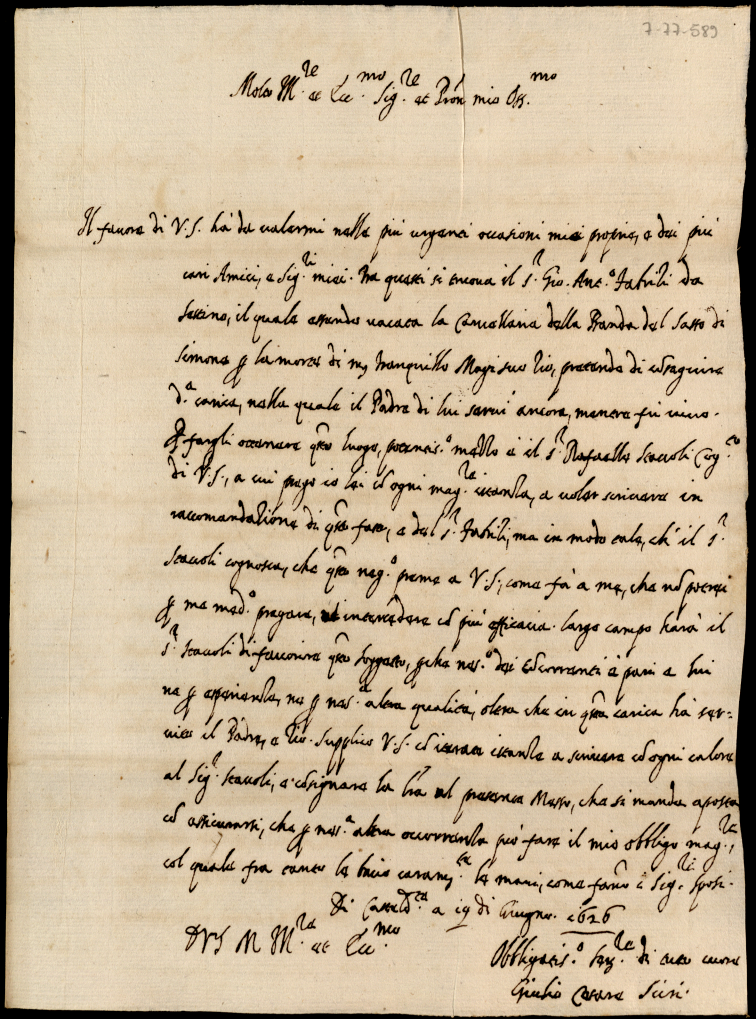 7-77-589
Molto M.re et Ecc.mo Sig.re et Pron mio Oss.mo
Il favore di V.S. hà da valermi nelle più urgenti occasioni mie proprie, e dei più
cari Amici, e Sig.ri miei. Tra questi si trova il s.r Gio. Ant.o Fabritij da
Sestino, il quale essendo vacata la Cancellaria della Banda del Sasso di
Simone p la morte di Tranquillo Magi suo Zio, pretende di conseguire
d.a carica, nella quale il Padre di lui servì ancora, mentre fù vivo.
P fargli ottenere qsto luogo, potentiss.o mezzo è il s.r Raffaello Staccoli Cog.to
di V.S., a cui prego io lei cō ogni mag.re istanza, a voler scrivere in
raccomandatione di qsto fatto, e del s.r Fabritij, ma in modo tale, ch' il s.r
Staccoli cognosca, che qsto neg.o preme a V.S., come fà a me, che nō potrei
p me med.o pregare, et intercedere cō più efficacia. Largo campo harà il
s.r Staccoli di favorire qsto soggetto, pche nes.o dei cōcorrenti è pari a lui
ne p esperienza, ne p nes.a altra qualità, oltra che in qsta carica hà ser-
vito il Padre, e Zio. Supplico V.S. cō iterata istanza a scrivere cō ogni calore
al Sig.r Staccoli, e cōsignare la lra al presente Messo, che si manda aposta
cō assicurarsi, che p nes.a altra occorrenza può fare il mio obbligo mag.re,
col quale fra tanto le bacio caram.te le mani, come fanno i Sig.ri Sposi.
Di Casteld.te a 19 di Giugno. 1626
D V S M M.re et Ecc.mo
Obbligatis.o Ser.re di tutto cuore
Giulio Cesare